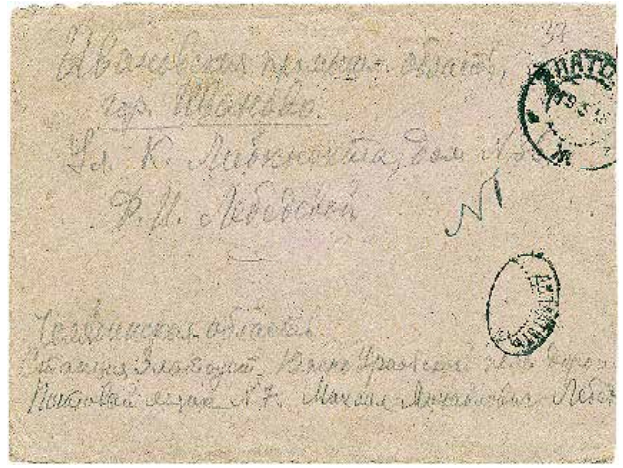 37
Ивановская промышл. область,
гор. Иваново.
Ул. К. Либкнехта, дом №
Ф. И. Лебедевой
№1
ЗЛАТО
Челябинская область
Станция Златоуст. Южно Уральской ж. д. дороги
Почтовый ящик №7. Михаил Михайлович Лебед